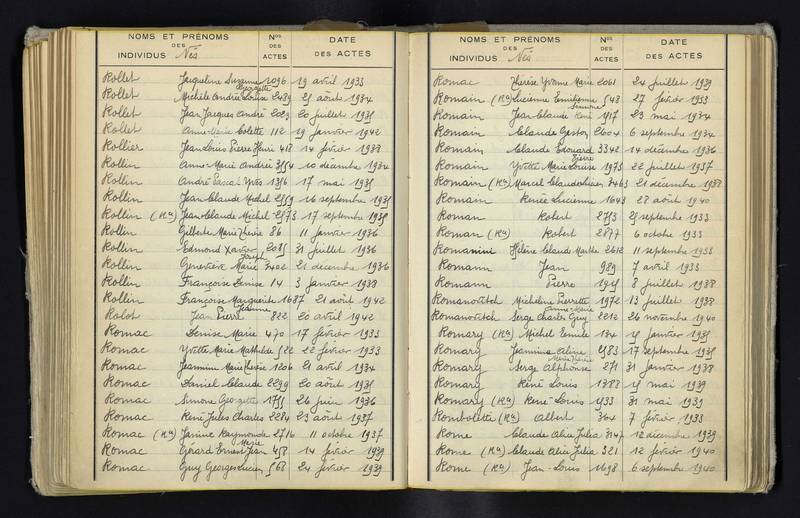 NOMS ET PRÉNOMS DES INDIVIDUS Nés Nos DES ACTES DATE DES ACTES
Rollet Jacqueline Suzanne 1096 19 avril 1933
Rollet Michèle Andrée Georgette Louise 2489 25 août 1934
Rollet Jean Jacques André 2023 20 juillet 1935
Rollet Anne Marie Colette 112 19 janvier 1942
Rollier Jean Louis Pierre Henri 418 14 février 1938
Rollin Anne Marie Andrée 3554 10 décembre 1934
Rollin André Pascal Yves 1356 17 mai 1935
Rollin Jean Claude Michel 2559 16 septembre 1935
Rollin (Rn) Jean Claude Michel 2573 17 septembre 1935
Rollin Gilberte Marie 86 11 janvier 1936
Rollin Edmond Xavier Joseph 2085 31 juillet 1936
Rollin Geneviève Marie 3402 21 décembre 1936
Rollin Françoise Denise 14 3 janvier 1938
Rollin Françoise Marguerite Jeanne 1687 21 avril 1942
Rolot Jean Pierre 822 20 avril 1942
Romac Denise Marie 470 17 février 1933
Romac Yvette Marie Mathilde 522 22 février 1933
Romac Jeannine Marie 1206 21 avril 1934
Romac Daniel Claude 2299 20 août 1935
Romac Simone Georgette 1755 26 juin 1936
Romac René Jules Charles 2284 23 août 1937
Romac (Rn) Janine Raymonde 2716 11 octobre 1937
Romac Gérard Ernest Marie Jean 458 14 février 1939
Romac Guy Georges Lucien 568 24 février 1939
NOMS ET PRÉNOMS DES INDIVIDUS Nés Nos DES ACTES DATE DES ACTES
Romac Thérèse Yvonne Marie 2061 24 juillet 1939
Romain (Rn) Lucienne Emilienne Simone 548 27 février 1933
Romain Jean Claude René 1517 23 mai 1934
Romain Claude Gaston 2604 6 septembre 1934
Romain Claude Edouard Pierre 3342 14 décembre 1936
Romain Yvette Marie Louise 1975 22 juillet 1937
Romain (Rn) Marcel Claude 3463 21 décembre 1938
Romain Renée Lucienne 1643 28 août 1940
Roman Robert 2753 25 septembre 1933
Roman (Rn) Robert 2877 6 octobre 1933
Romanini Hélène Claude Marthe 2612 11 septembre 1933
Romann Jean 989 7 avril 1933
Romann Pierre 1915 8 juillet 1938
Romanovitch Micheline Pierrette Anne-Marie 1972 13 juillet 1938
Romanovitch Serge Charles Guy 2210 26 novembre 1940
Romary (Rn) Michel Emile 184 15 janvier 1935
Romary Jeannine Céline 2583 17 septembre 1935
Romary Serge Alphonse 271 31 janvier 1938
Romary René Louis 1388 15 mai 1939
Romary (Rn) René Louis 1533 31 mai 1939
Rombolette (Rn) Albert 364 7 février 1933
Rome Claude Alice Julia 3147 12 décembre 1939
Rome (Rn) Claude Alice Julia 321 12 février 1940
Rome (Rn) Jean-Louis 1698 6 septembre 1940